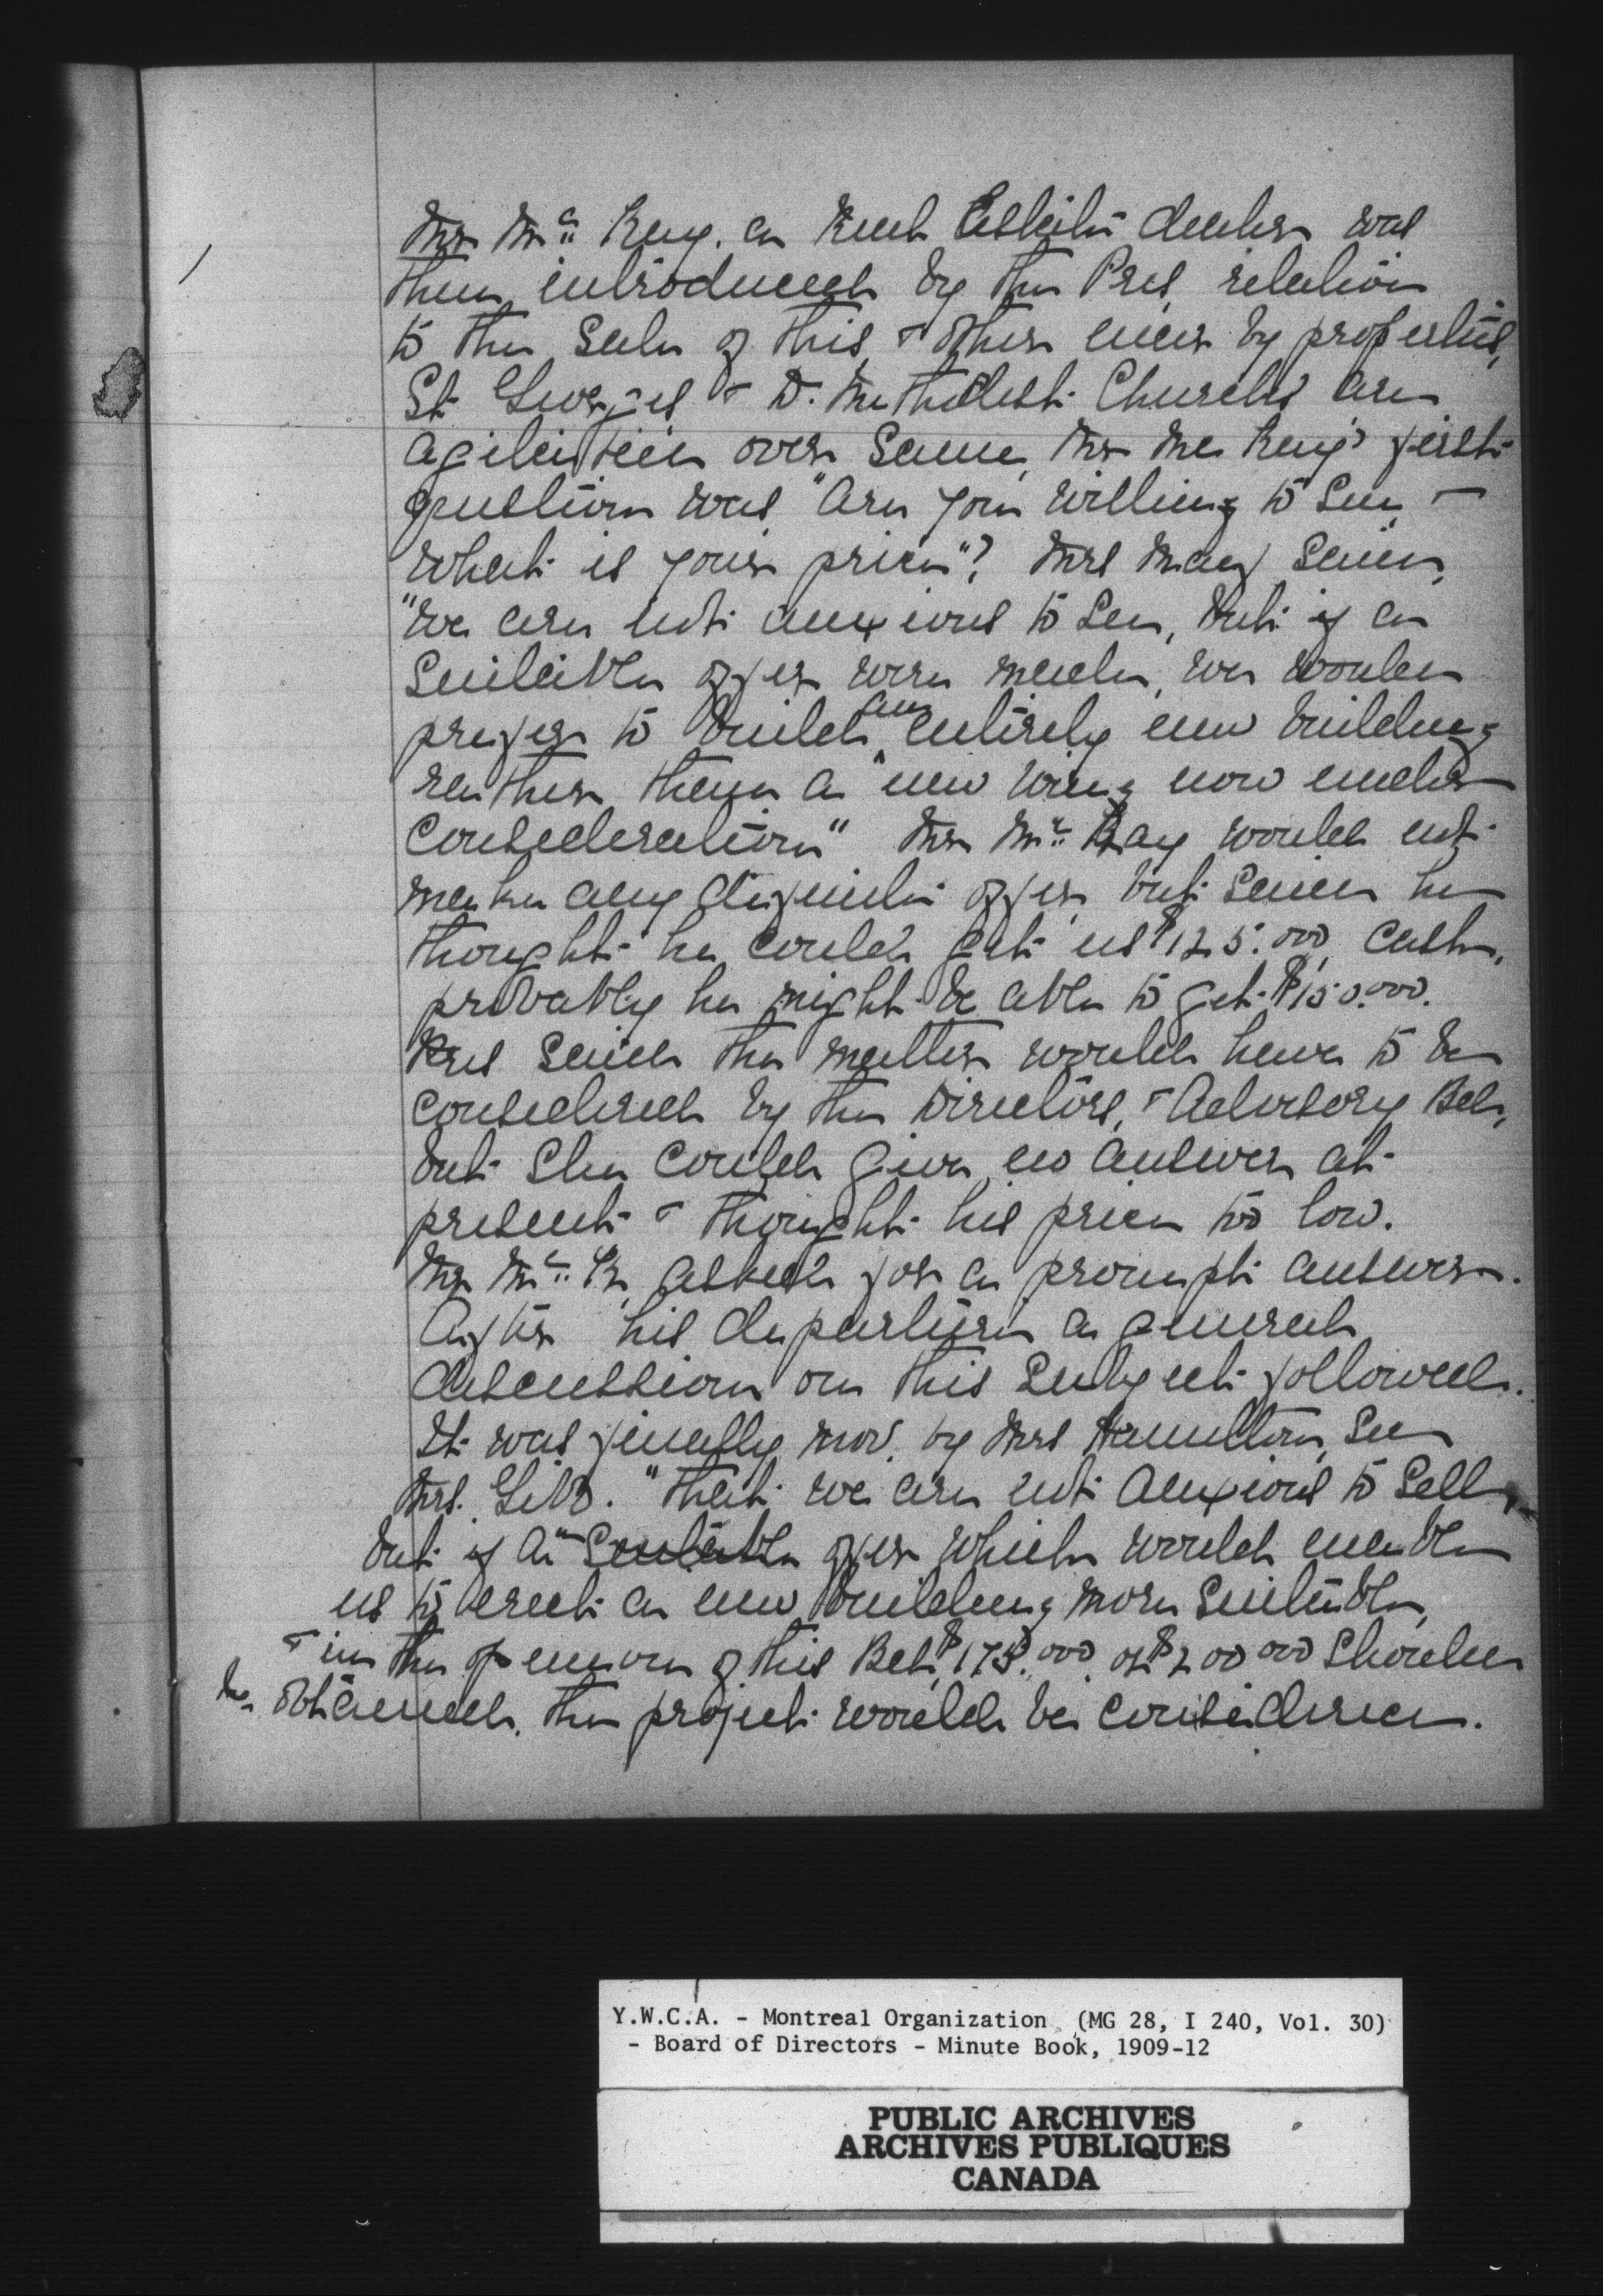 Mr McKay, a Real Estate dealer was
then introduced by the Pres, relation
to the Sale of this & other near by properties,
St Georges & D. Methodist Church are
agitation over same, Mr McKay's first
question was "Are you willing to sell, –
what is your price"? Mrs May said,
"We are not anxious to sell, but if a
Suitable offer were made, we would
prefer to build an entirely new building
rather than a new wing now under
Consideration" Mr McKay would not
make any definite offer, but said he
thought he could get us $125.000, cash,
probably he might be able to get $150.000.
Pres said the matter would have to be
considered by the Directors, & Advisory Bd,
but she could give no answer at
present & thought his price too low.
Mr McK, asked for a prompt answer.
After his departure a general
discussion on this subject followed.
It was finally mov. by Mrs Hamilton, Sec
Mrs. Gibb. "That we are not anxious to Sell,
but if an Suitable offer which would enable
us to erect a new building more Suitable,
& in the openion of this Bd, $175.000 or $200 000 should
be obtained, the project would be considered.
Y.W.C.A. - Montreal Organization (MG 28, I 240, Vol. 30)
- Board of Directors - Minute Book, 1909-12
PUBLIC ARCHIVES
ARCHIVES PUBLIQUES
CANADA